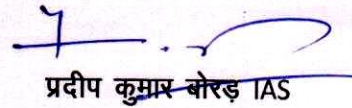 प्रदीप कुमार बोरड़ IAS